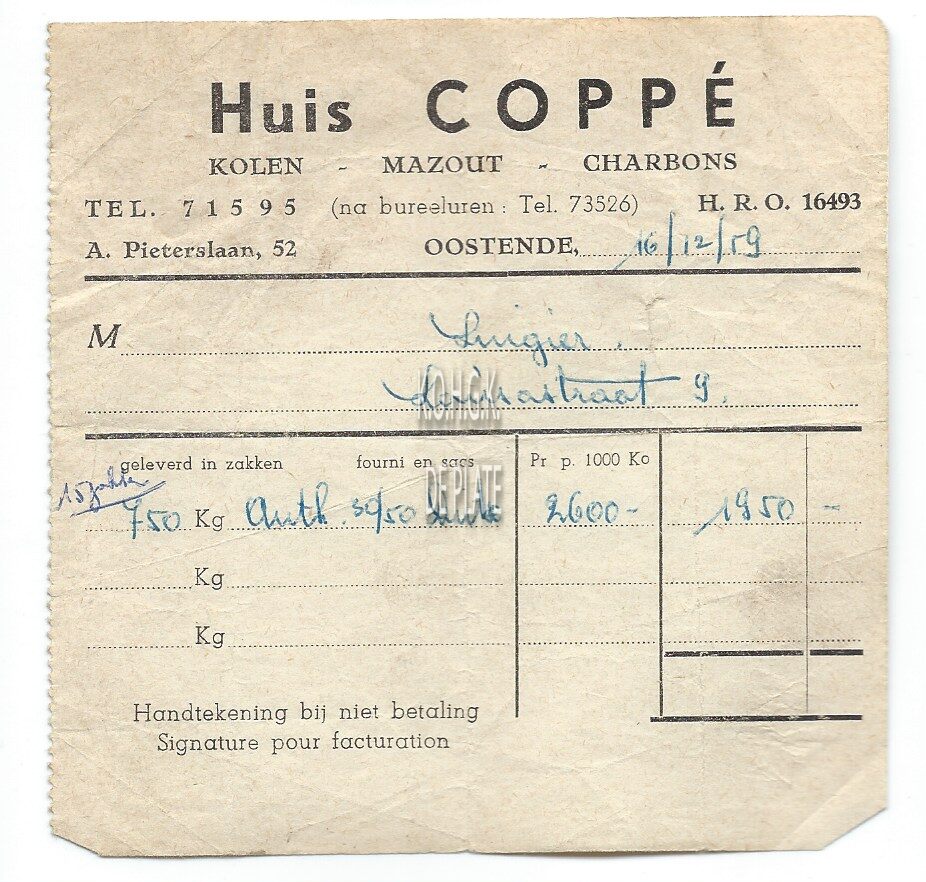 Huis COPPÉ
KOLEN - MAZOUT - CHARBONS
TEL. 71595 (na bureeluren : Tel. 73526) H. R. O. 16493
A. Pieterslaan, 52 OOSTENDE, 16/12/59
M Luigier.
Louisastraat 9.
KO.H.G.K.
geleverd in zakken fourni en sacs Pr p. 1000 Ko
DE PLATE
15 zakken
750 Kg Anth. 30/50 2600- 1950 -
Kg
Kg
Handtekening bij niet betaling
Signature pour facturation